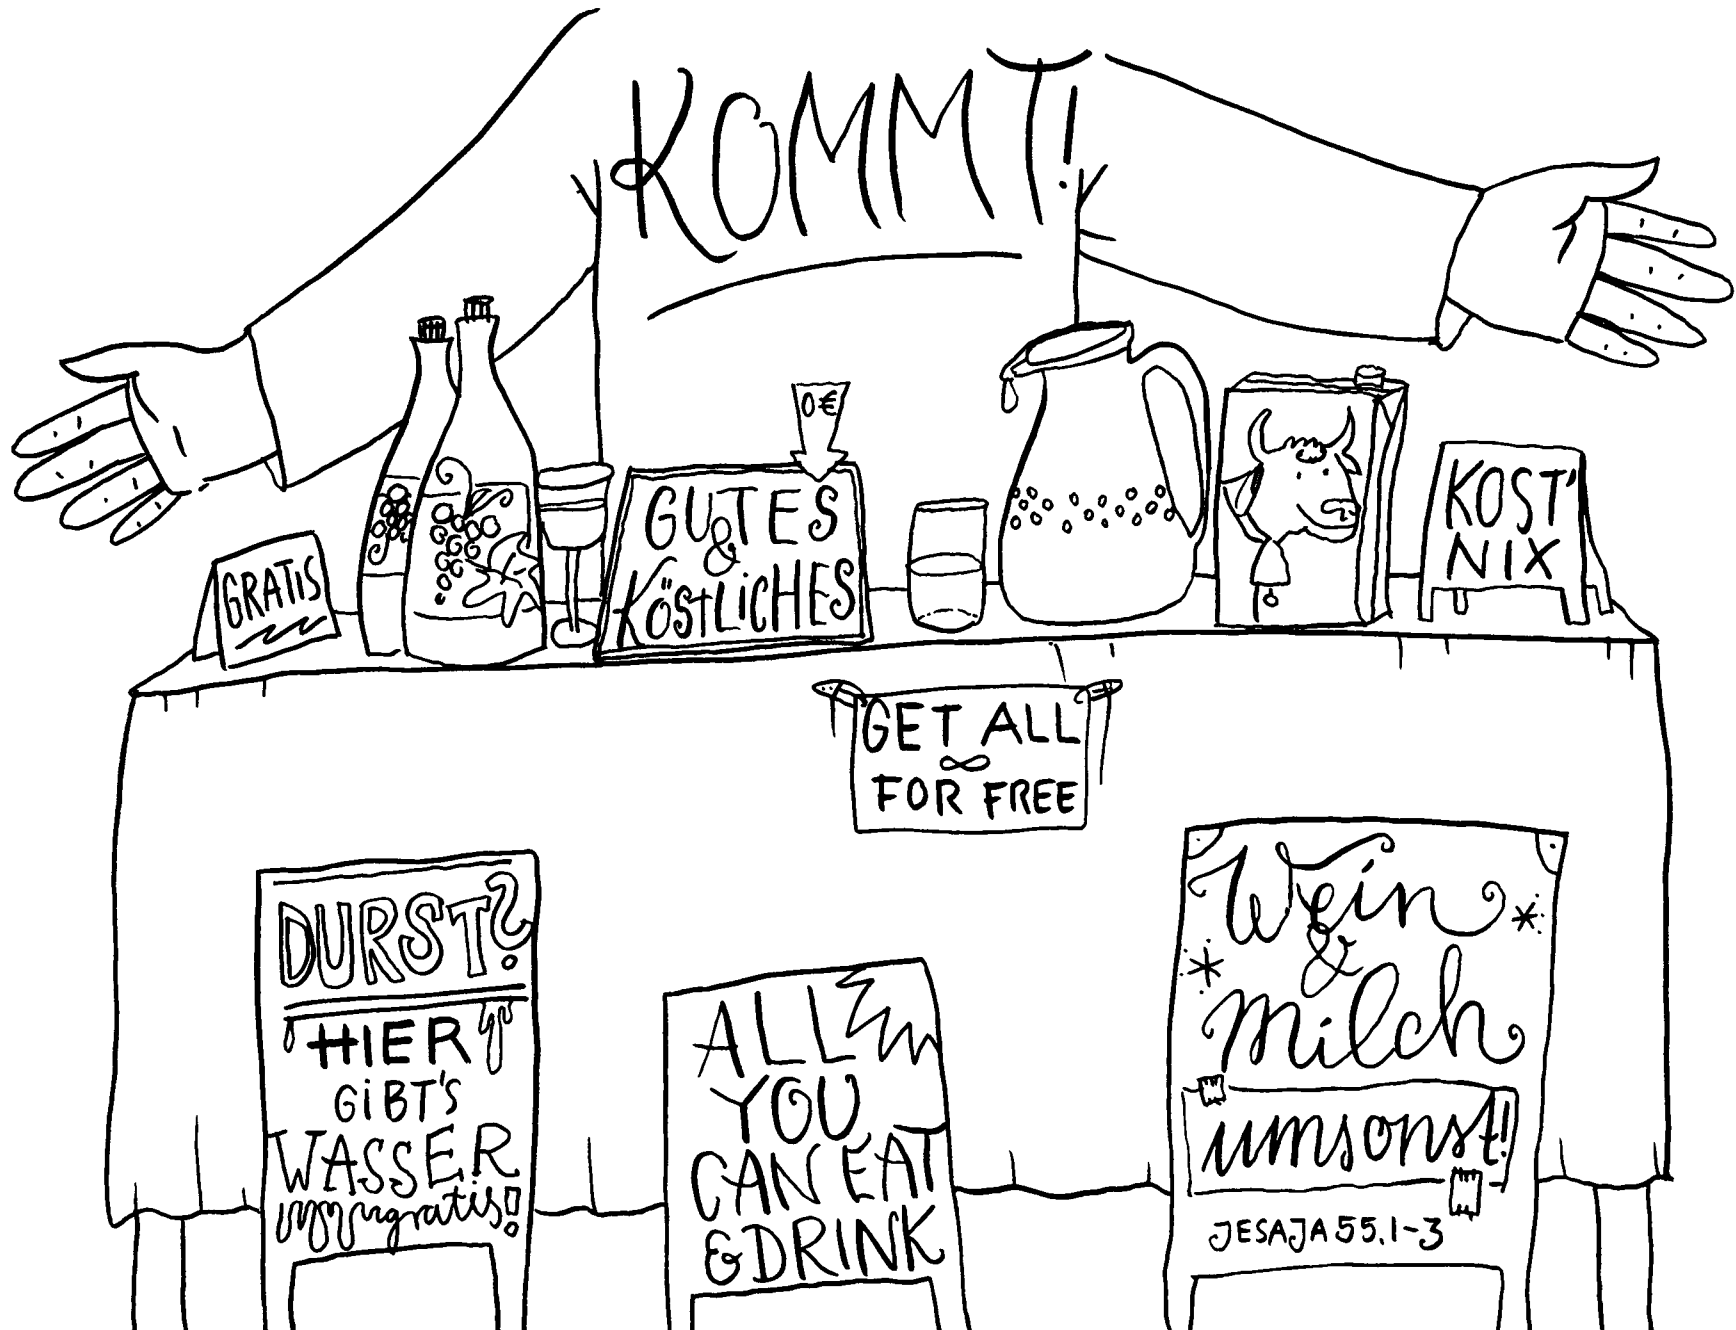 KOMMT!
0€
GUTES
&
KÖSTLICHES
GRATIS
KOST'
NIX
GET ALL
FOR FREE
DURST?
HIER
GIBT'S
WASSER
gratis!
ALL
YOU
CAN EAT
& DRINK
Wein
&
milch
umsonst!
JESAJA 55,1-3